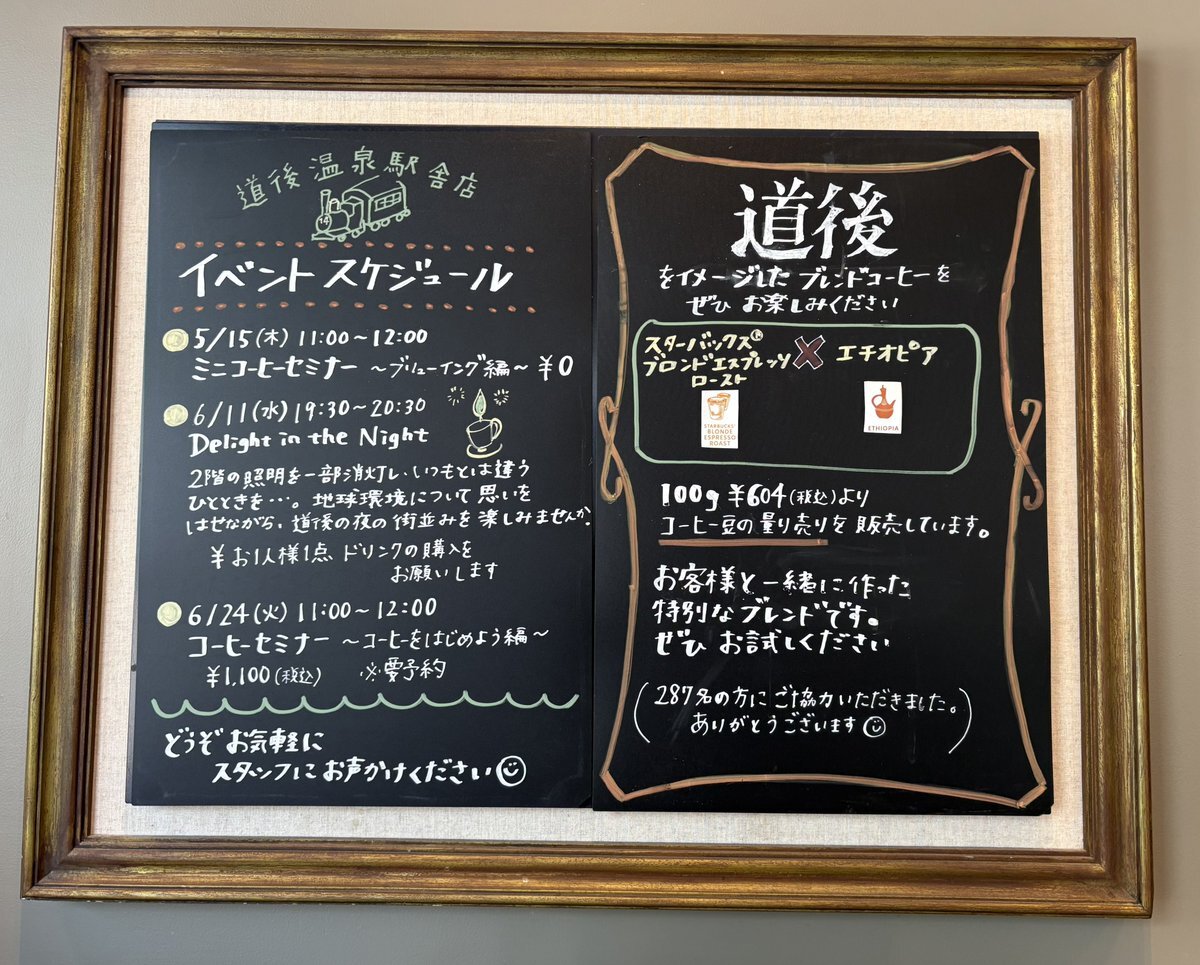 道後温泉駅舎店
14
イベントスケジュール
5/15(木) 11:00〜12:00
ミニコーヒーセミナー 〜ブリューイング編〜 ¥0
6/11(水) 19:30〜20:30
Delight in the Night
2階の照明を一部消灯し、いつもとは違う
ひとときを…。地球環境について思いを
はせながら、道後の夜の街並みを楽しみませんか?
¥お1人様1点 ドリンクの購入を
お願いします
6/24(火) 11:00〜12:00
コーヒーセミナー 〜コーヒーをはじめよう編〜
¥1,100(税込) ※要予約
どうぞお気軽に
スタッフにお声かけください
道後
をイメージしたブレンドコーヒーを
ぜひ お楽しみください
スターバックス®
ブロンドエスプレッソ
ロースト
X
エチオピア
STARBUCKS®
BLONDE
ESPRESSO
ROAST
ETHIOPIA
100g ¥604(税込)より
コーヒー豆の量り売りを販売しています。
お客様と一緒に作った
特別なブレンドです。
ぜひ お試しください
(287名の方にご協力いただきました。
ありがとうございます)